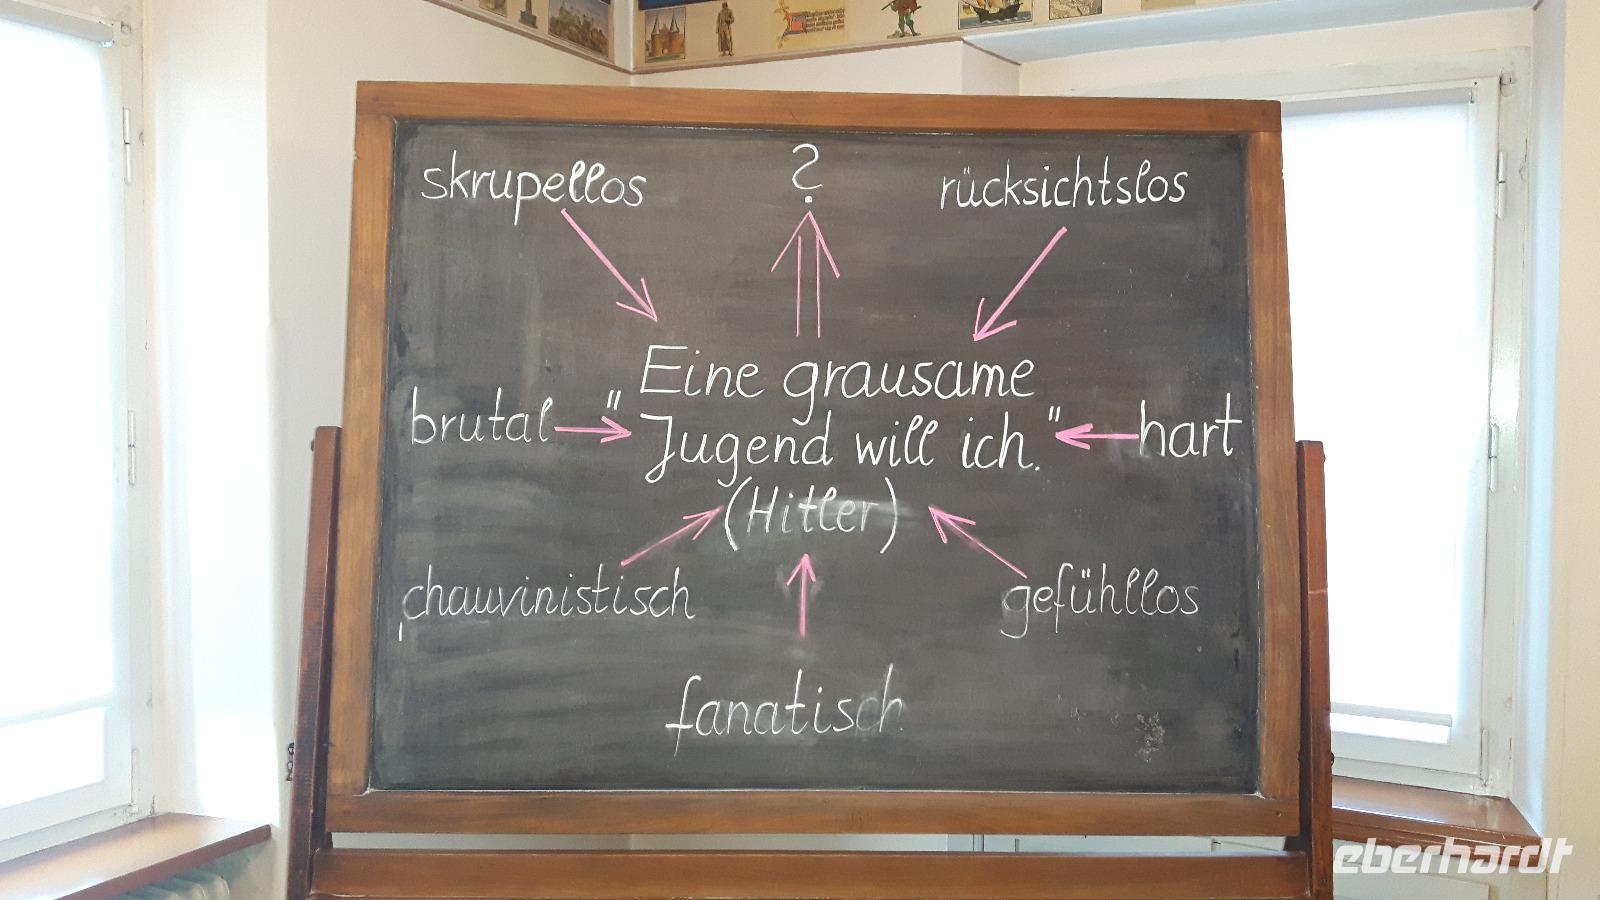 skrupellos
?
rücksichtslos
"Eine grausame
Jugend will ich."
(Hitler)
brutal
hart
chauvinistisch
gefühllos
fanatisch
eberhardt